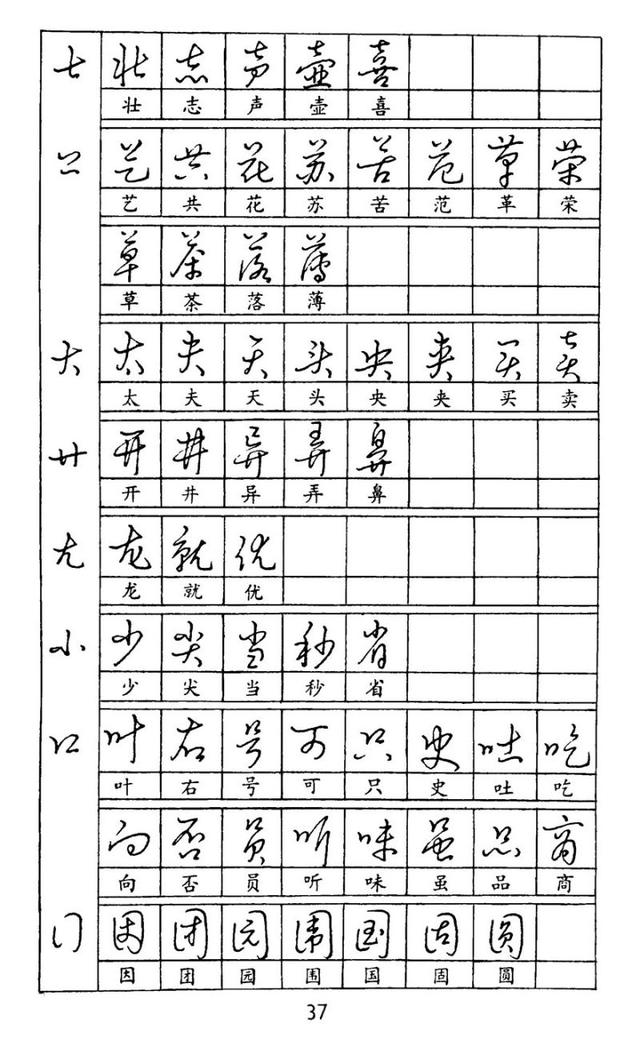 士 壮 志 声 壶 喜
壮 志 声 壶 喜
艹 艺 共 花 苏 苦 范 革 荣
艺 共 花 苏 苦 范 革 荣
草 茶 落 薄
草 茶 落 薄
大 太 夫 天 头 央 夹 买 卖
太 夫 天 头 央 夹 买 卖
廾 开 井 异 弄 鼻
开 井 异 弄 鼻
尤 龙 就 优
龙 就 优
小 少 尖 当 秒 省
少 尖 当 秒 省
口 叶 右 号 可 只 史 吐 吃
叶 右 号 可 只 史 吐 吃
向 否 员 听 味 虽 品 商
向 否 员 听 味 虽 品 商
囗 因 团 园 围 国 固 圆
因 团 园 围 国 固 圆
37